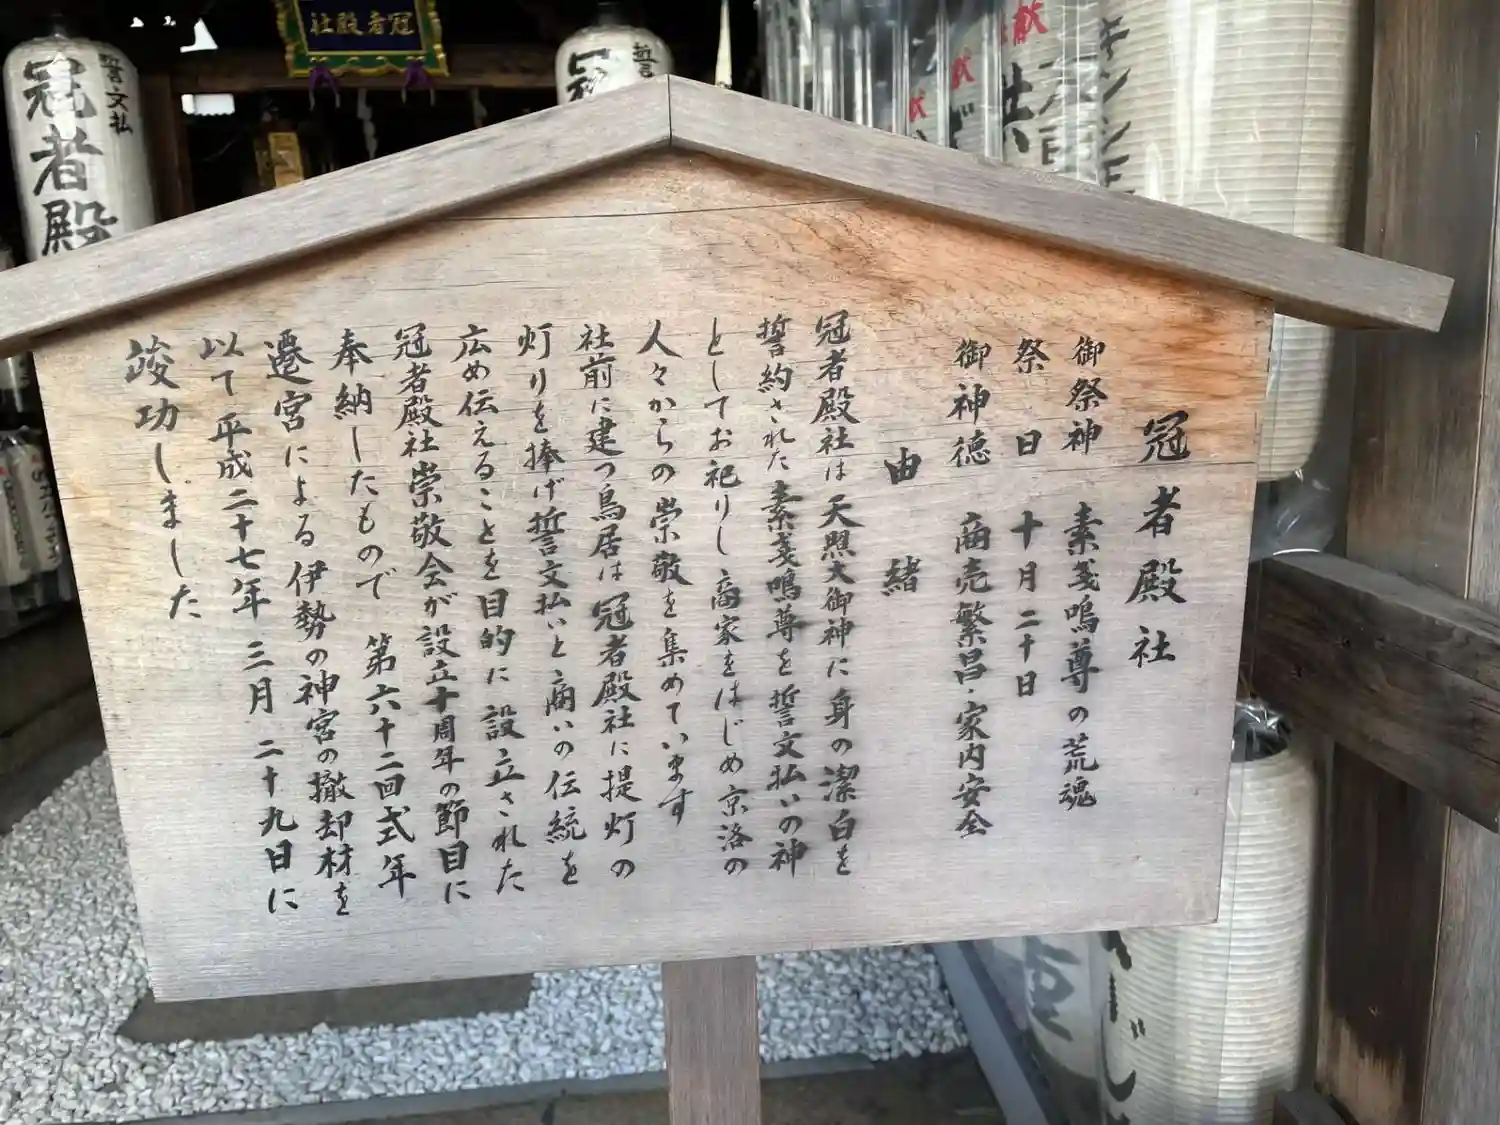 冠者殿社
御祭神 素戔嗚尊の荒魂
祭日 十月二十日
御神徳 商売繁昌・家内安全
由緒
冠者殿社は天照大御神に身の潔白を
誓約された素戔嗚尊を誓文払いの神
としてお祀りし商家をはじめ京洛の
人々からの崇敬を集めています
社前に建つ鳥居は冠者殿社に提灯の
灯りを捧げ誓文払いと商いの伝統を
広め伝えることを目的に設立された
冠者殿社崇敬会が設立十周年の節目に
奉納したもので 第六十二回式年
遷宮による伊勢の神宮の撤却材を
以て平成二十七年三月二十九日に
竣功しました
冠者殿社
誓文払
冠者殿
誓
冠
献
供